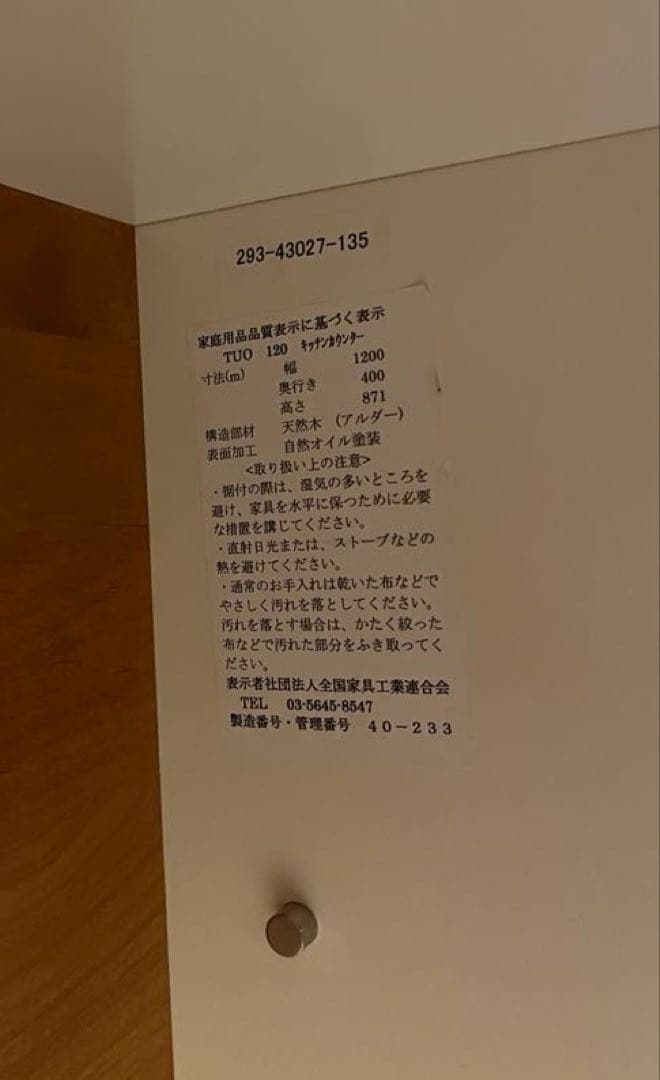 293-43027-135
家庭用品品質表示に基づく表示
TUO 120 キッチンカウンター
寸法(m) 幅 1200
奥行き 400
高さ 871
構造部材 天然木 (アルダー)
表面加工 自然オイル塗装
<取り扱い上の注意>
・据付の際は、湿気の多いところを
避け、家具を水平に保つために必要
な措置を講じてください。
・直射日光または、ストーブなどの
熱を避けてください。
・通常のお手入れは乾いた布などで
やさしく汚れを落としてください。
汚れを落とす場合は、かたく絞った
布などで汚れた部分をふき取ってく
ださい。
表示者社団法人全国家具工業連合会
TEL 03-5645-8547
製造番号・管理番号 40-233